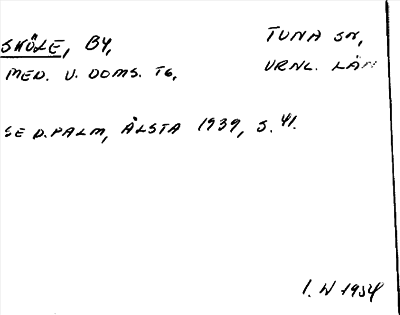 SKÖLE, BY, TUNA SN,
MED. U. DOMS. TG, VRNL. LÄN
SE D. PALM, ÄLSTA 1939, S. 41.
I. W 1954